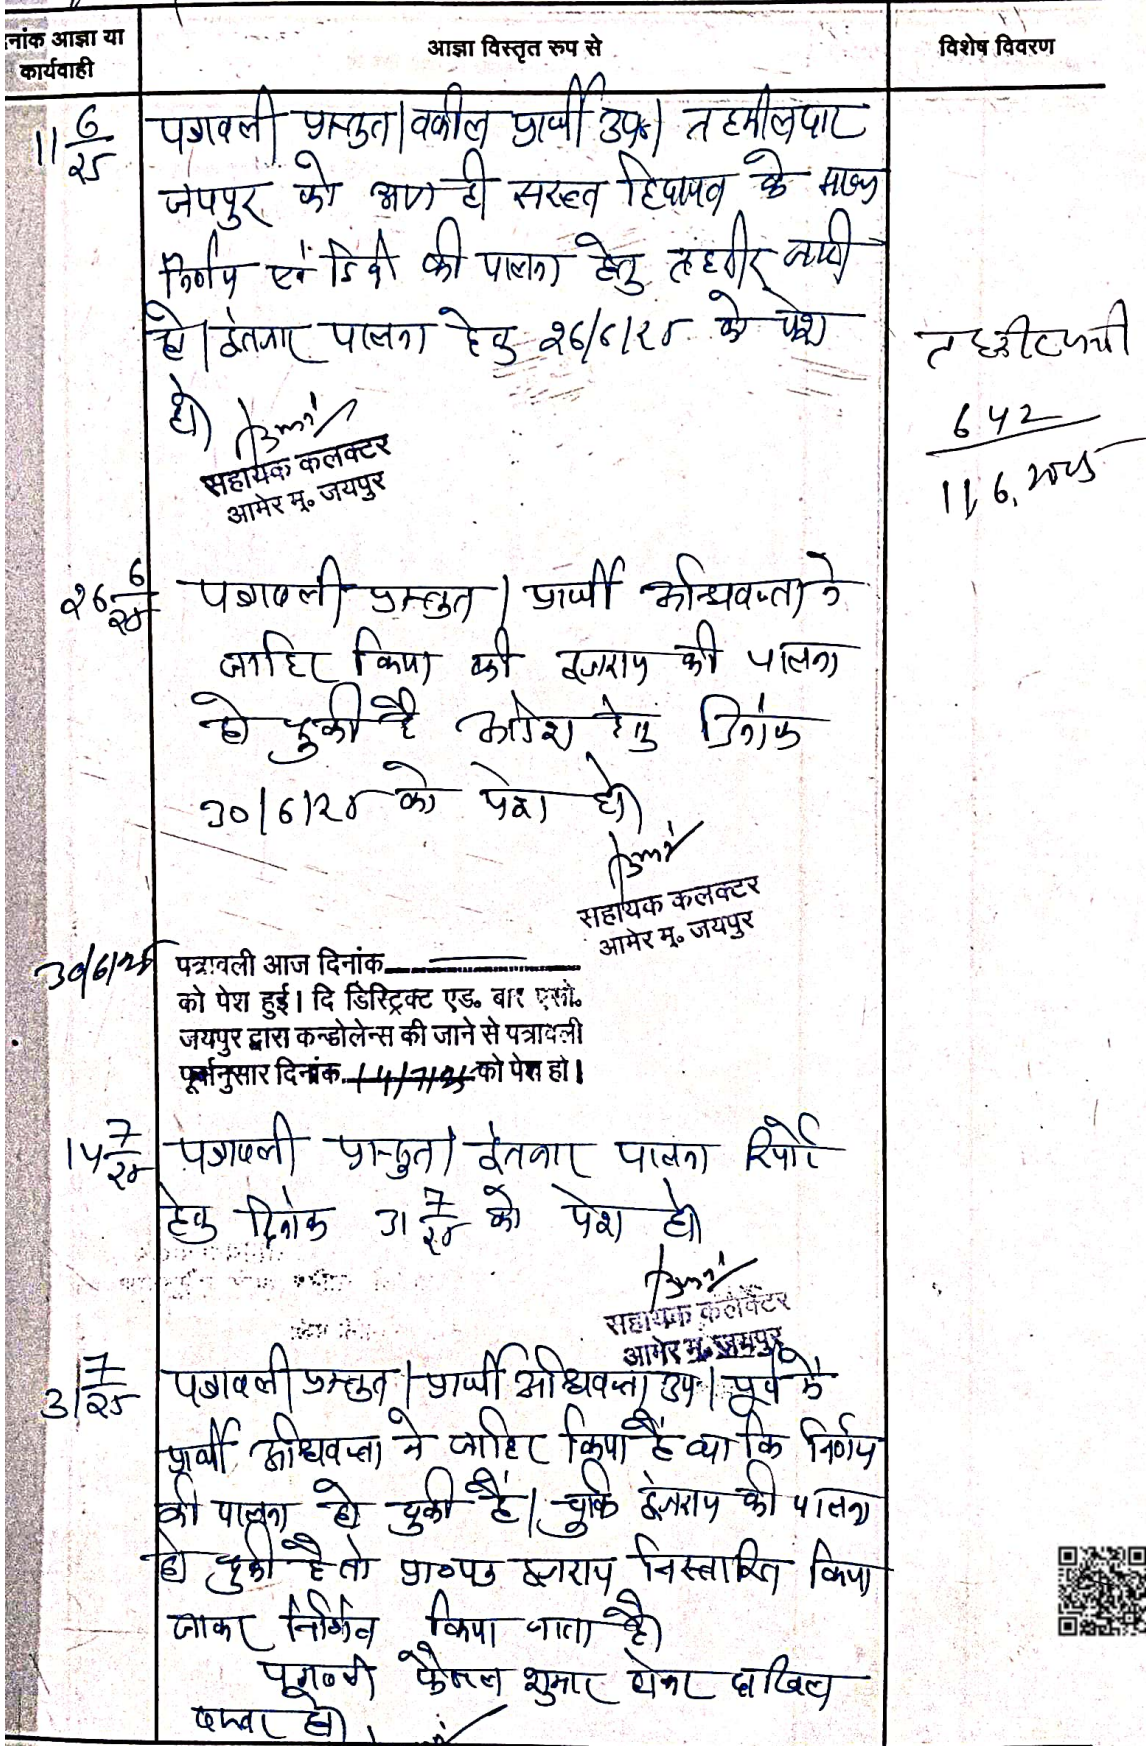 नांक आज्ञा या
कार्यवाही
आज्ञा विस्तृत रुप से
विशेष विवरण
11 6/25
पत्रावली प्रस्तुत। वकील प्रार्थी उप०। तहसीलदार
जयपुर को आज ही सख्त हिदायत के साथ
निर्णय एवं डिक्री की पालना हेतु तहरीर जारी
हो। इंतजार पालना हेतु 26/6/25 को पेश
हो।
सहायक कलक्टर
आमेर मु० जयपुर
तहरीर जारी
642
11/6.
26 6/25
पत्रावली प्रस्तुत। प्रार्थी अधिवक्ता ने
जाहिर किया की इजराय की पालना
हो चुकी है आदेश हेतु दिनांक
30/6/25 को पेश हो।
सहायक कलक्टर
आमेर मु० जयपुर
30/6/25
पत्रावली आज दिनांक
को पेश हुई। दि डिस्ट्रिक्ट एड० बार एसो०
जयपुर द्वारा कन्डोलेन्स की जाने से पत्रावली
पूर्वानुसार दिनांक 14/7/25 को पेश हो।
14 7/25
पत्रावली प्रस्तुत। इंतजार पालना रिपोर्ट
हेतु दिनांक 31 7/25 को पेश हो।
सहायक कलेक्टर
आमेर मु. जयपुर
31 7/25
पत्रावली प्रस्तुत। प्रार्थी अधिवक्ता उप०। पूर्व में
प्रार्थी अधिवक्ता ने जाहिर किया है था कि निर्णय
की पालना हो चुकी है। चुकि इजराय की पालना
हो चुकी है तो प्रा०पत्र इजराय निस्तारित किया
जाकर निर्णित किया जाता है।
पत्रावली फैसल शुमार होकर दाखिल
दफ्तर हो।